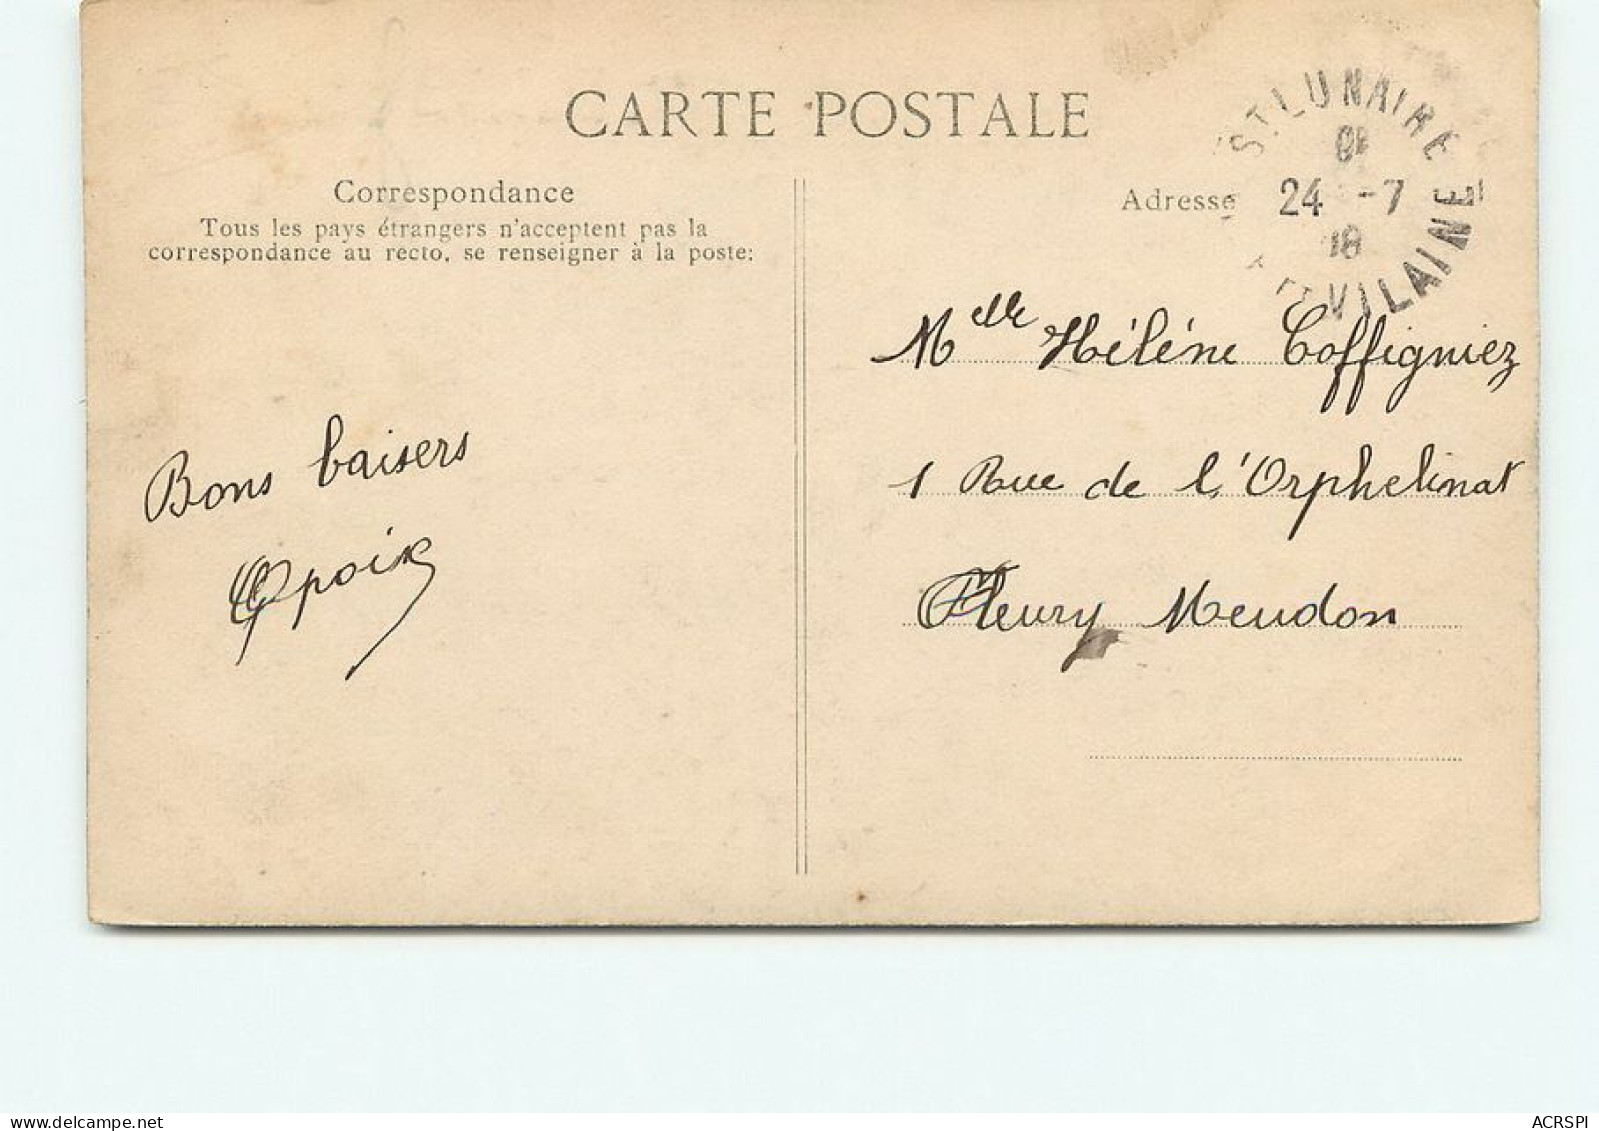 CARTE POSTALE
Correspondance
Tous les pays étrangers n'acceptent pas la
correspondance au recto, se renseigner à la poste:
Adresse
ST LUNAIRE
24 -7
18
VILAINE
Melle Hélène Coffigniez
1 Rue de l'Orphelinat
Fleury Meudon
Bons baisers
delcampe.net
ACRSPI